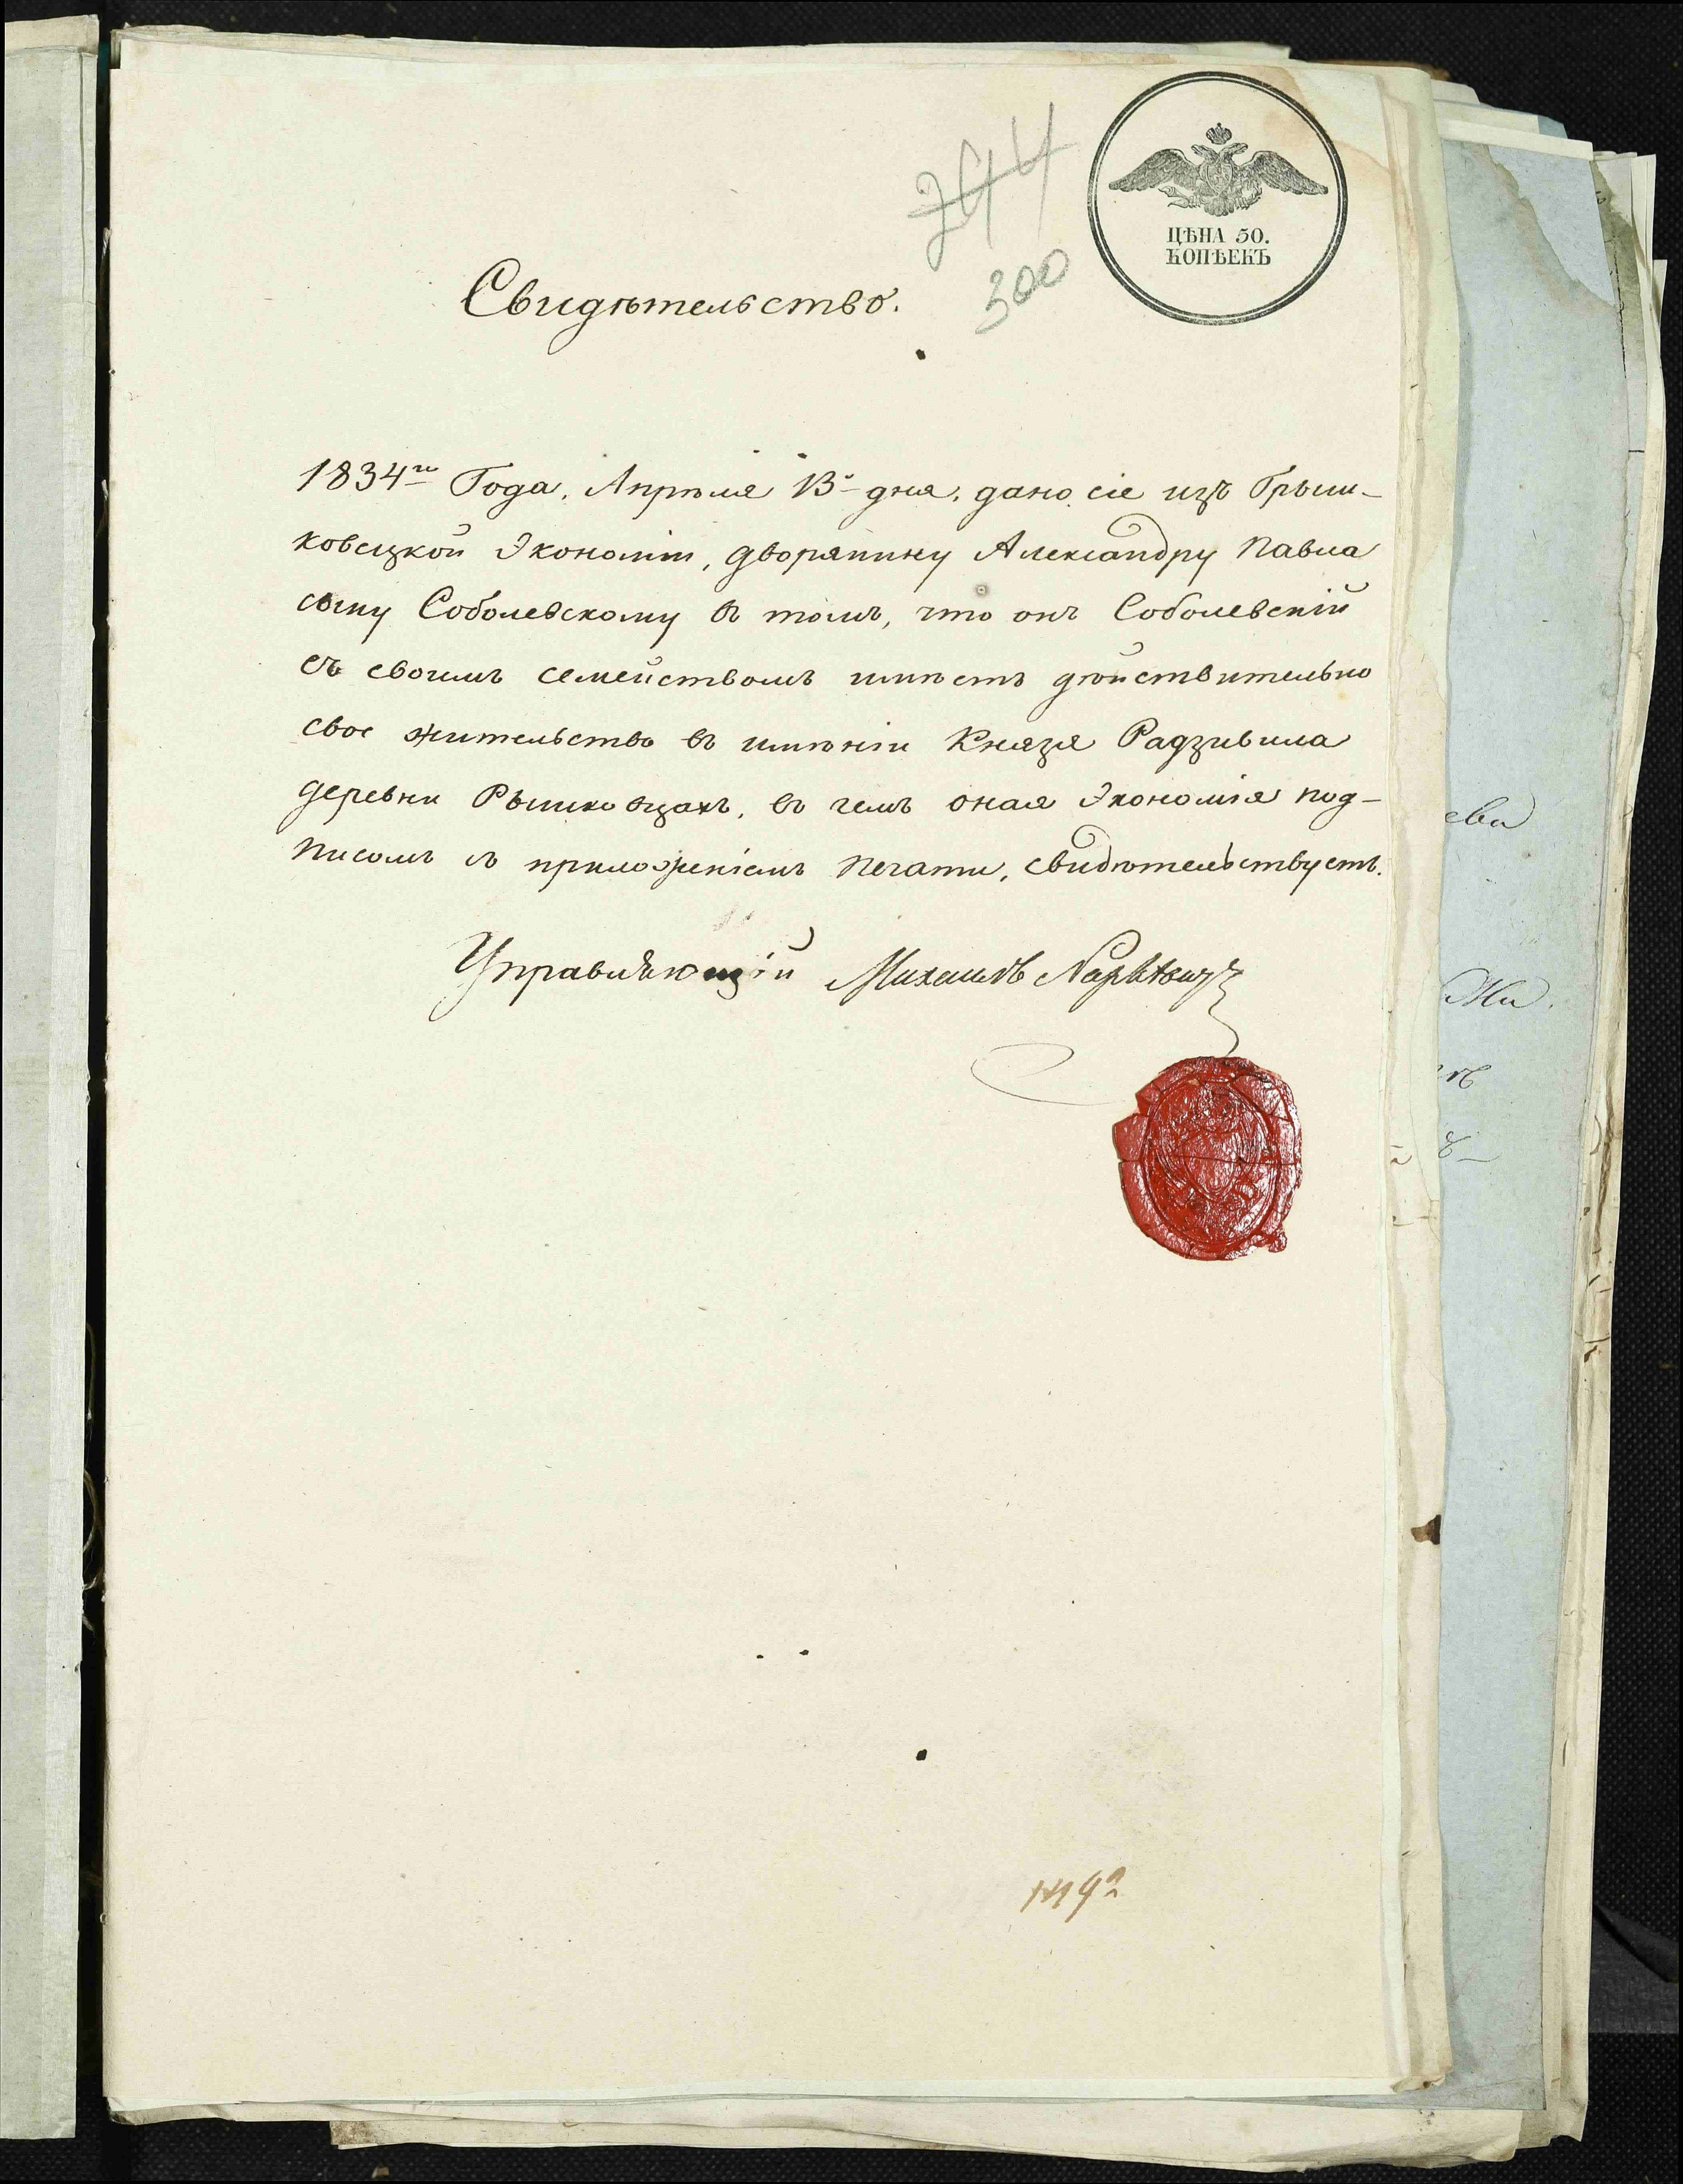 244
300
ЦѢНА 50.
КОПѢЕКЪ
Свидѣтельство.
1834го Года. Апрѣля 13о дня. дано сіе изъ Грыш-
ковецкой Экономіи, дворянину Александру Павла
сыну Соболевскому въ томъ, что онъ Соболевскій
съ своимъ семействомъ имѣетъ дѣйствительно
свое жительство въ имѣніи Князя Радзивила
деревни Рышковцахъ, въ чемъ оная Экономія под-
писомъ съ приложеніемъ печати, свидѣтельствуетъ.
Управляющій Михаилъ